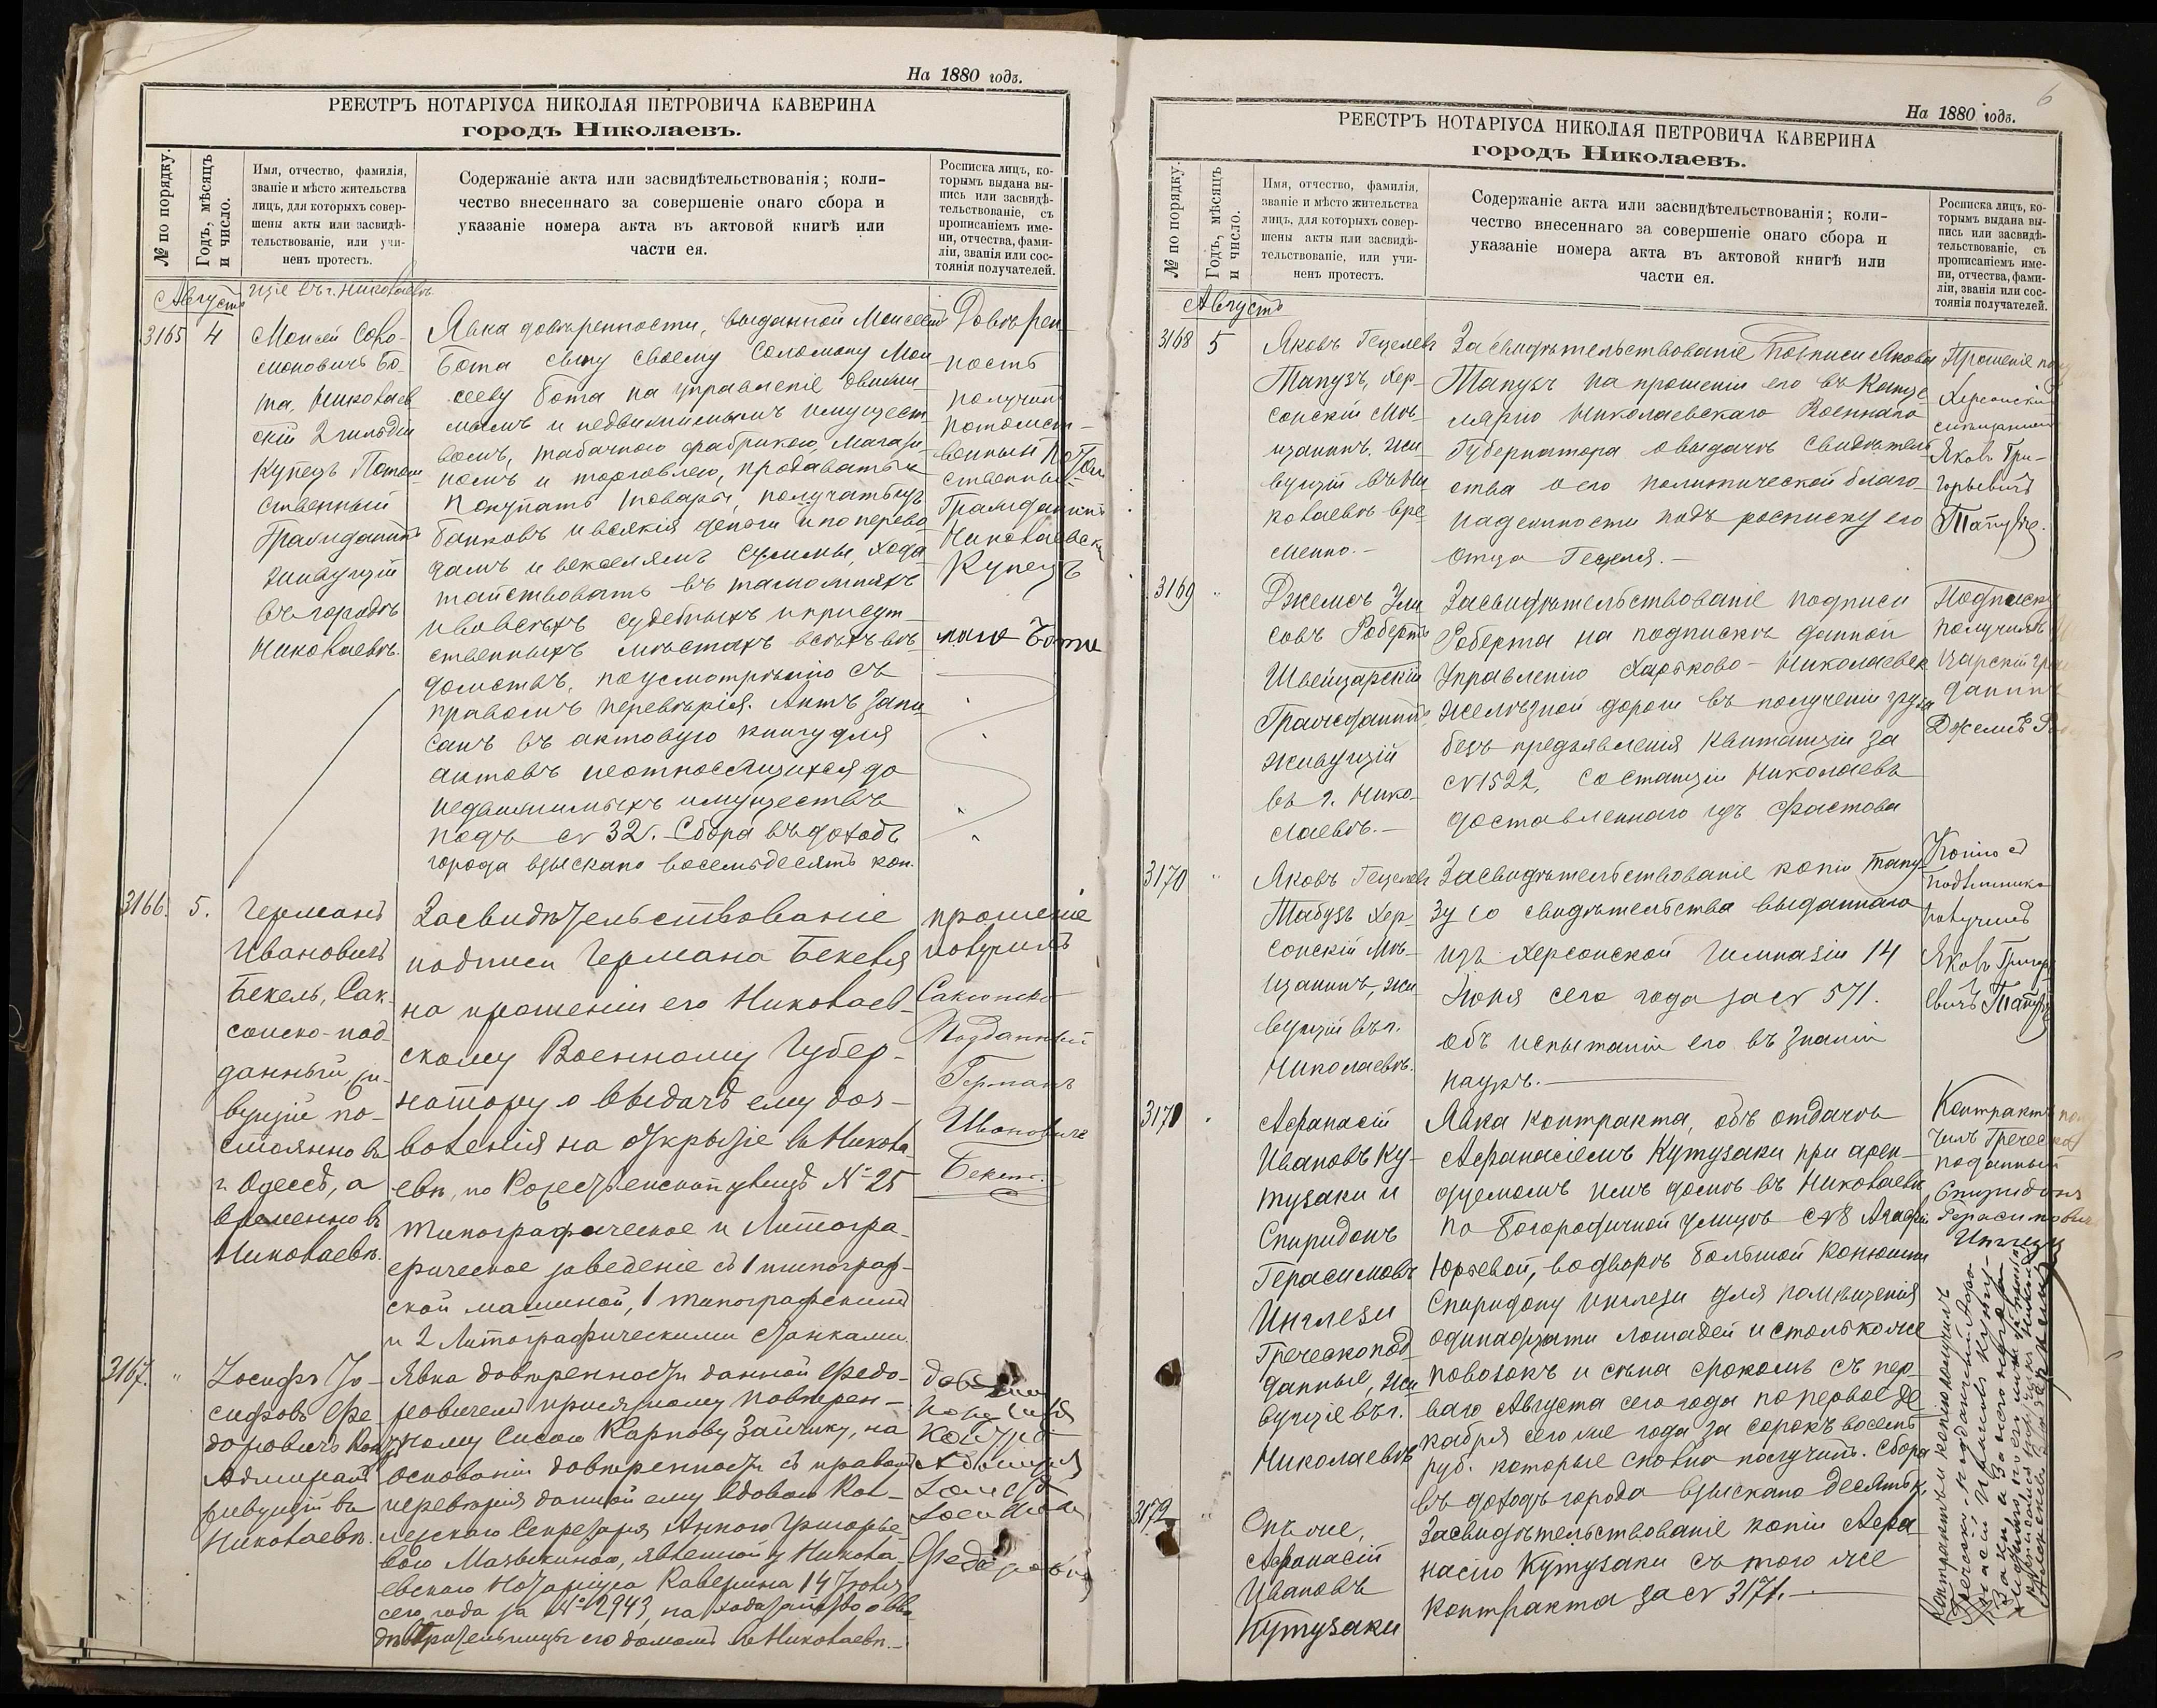 На 1880 годъ.
РЕЕСТРЪ НОТАРІУСА НИКОЛАЯ ПЕТРОВИЧА КАВЕРИНА
городъ Николаевъ.
№ по порядку.
Годъ, мѣсяцъ и число.
Имя, отчество, фамилія,
званіе и мѣсто жительства
лицъ, для которыхъ совер-
шены акты или засвидѣ-
тельствованіе, или учи-
ненъ протестъ.
Содержаніе акта или засвидѣтельствованія; коли-
чество внесеннаго за совершеніе онаго сбора и
указаніе номера акта въ актовой книгѣ или
части ея.
Росписка лицъ, ко-
торымъ выдана вы-
пись или засвидѣ-
тельствованіе, съ
прописаніемъ име-
ни, отчества, фами-
ліи, званія или сос-
тоянія получателей.
Августъ
щіе въ г. Николаевѣ.
3165 4
Моисей Соло-
моновичъ Бо-
та, Николаев-
скій 2 гильдіи
Купецъ Потом-
ственный
Гражданинъ
живущій
въ городѣ
Николаевѣ.
Явка довѣренности, выданной Моисеемъ
Бота сыну своему Соломону Мои-
сееву Бота на управленіе движи-
мымъ и недвижимымъ имущест-
вомъ, табачною фабрикою, магази-
номъ и торговлею, продавать и
покупать товары, получать изъ
банковъ и всякія деньги и по перево-
дамъ и векселямъ суммы, хода-
тайствовать въ таможняхъ
и во всѣхъ судебныхъ и присут-
ственныхъ мѣстахъ всѣхъ вѣ-
домствъ, по усмотрѣнію съ
правомъ перевѣрія. Актъ запи-
санъ въ актовую книгу для
актовъ неотносящихся до
недвижимыхъ имуществъ
подъ № 32. Сбора въ доходъ
города взыскано восемьдесятъ коп.
Довѣрен-
ность
получилъ
потомст-
венный Потом-
ственный
Гражданинъ
Николаевскій
Купецъ
Бота
3166. 5.
Германъ
Ивановичъ
Бекель, Сак-
сонско-под-
данный, жи-
вущій по-
стоянно въ
г. Одессѣ, а
временно въ
Николаевѣ.
Засвидѣтельствованіе
подписи Германа Бекеля
на прошеніи его Николаев-
скому Военному Губер-
натору о выдачѣ ему доз-
воленія на открытіе въ Никола-
евѣ, по Рождественской улицѣ № 25
типографическое и Литогра-
фическое заведеніе съ 1 типограф-
ской машиной, 1 типографскимъ
и 2 Литографическими станками.
прошеніе
получилъ
Саксонско
Подданный
Германъ
Ивановичъ
Бекель
3167. "
Іосифъ Іо-
сифовъ Фе-
доровичъ Контръ
Адмиралъ
живущій въ
Николаевѣ.
Явка довѣренности данной Федо-
ровичемъ присяжному повѣрен-
ному Сисою Карпову Зайчику, на
основаніи довѣренности съ правомъ
перевѣрія данной ему вдовою Кол-
лежскаго Секретаря Анною Григорье-
вою Мазыкиною, явленной у Никола-
евскаго Нотаріуса Каверина 14 Іюля
сего года за № 2943, на ходатайство о вво-
дѣ вѣрительницы его домомъ въ Николаевѣ.
Контръ
Адмиралъ
Іосифъ
Іосифовъ
Федоровичъ
6
На 1880 годъ.
РЕЕСТРЪ НОТАРІУСА НИКОЛАЯ ПЕТРОВИЧА КАВЕРИНА
городъ Николаевъ.
№ по порядку.
Годъ, мѣсяцъ и число.
Имя, отчество, фамилія,
званіе и мѣсто жительства
лицъ, для которыхъ совер-
шены акты или засвидѣ-
тельствованіе, или учи-
ненъ протестъ.
Содержаніе акта или засвидѣтельствованія; коли-
чество внесеннаго за совершеніе онаго сбора и
указаніе номера акта въ актовой книгѣ или
части ея.
Росписка лицъ, ко-
торымъ выдана вы-
пись или засвидѣ-
тельствованіе, съ
прописаніемъ име-
ни, отчества, фами-
ліи, званія или сос-
тоянія получателей.
Августъ
3168 5
Яковъ Гецелевъ
Тапузъ, Хер-
сонскій Мѣ-
щанинъ, жи-
вущій въ Ни-
колаевѣ вре-
менно.
Засвидѣтельствованіе подписи Якова
Тапузъ на прошеніи его въ Канце-
лярію Николаевскаго Военнаго
Губернатора о выдачѣ свидѣтель-
ства о его политической благо-
надежности подъ росписку его
отца Гецеля.
Прошеніе
Херсонскій
Яковъ Гри-
горьевичъ
Тапузъ.
3169 "
Джемсъ Ули-
совъ Робертъ
Швейцарскій
Гражданинъ
живущій
въ г. Нико-
лаевѣ.
Засвидѣтельствованіе подписи
Роберта на подпискѣ данной
Управленію Харьково-Николаевск.
желѣзной дороги въ полученіи груза
безъ предъявленія квитанціи за
№ 1522, со станціи Николаевъ
доставленнаго изъ Фастова
Подписку
получилъ
Царскій
данинъ
Джемсъ
3170 "
Яковъ Гецелевъ
Табузъ Хер-
сонскій Мѣ-
щанинъ, жи-
вущій въ г.
Николаевѣ.
Засвидѣтельствованіе копіи Тапу-
зу со свидѣтельства выданнаго
изъ Херсонской Гимназіи 14
Іюня сего года за № 571.
объ испытаніи его въ знаніи
наукъ.
Копію съ
подлинникомъ
получилъ
Яковъ Григорь-
евичъ Тапузъ
3171
Афанасій
Ивановъ Ку-
тузаки и
Спиридонъ
Герасимовъ
Инглези
Греческопод-
данные, жи-
вущіе въ г.
Николаевѣ
Явка контракта, объ отдачѣ
Афанасіемъ Кутузаки при арен-
дуемомъ имъ домѣ въ Николаевѣ
по Богородичной улицѣ № 8 Агафіи
Юрьевой, во дворѣ большой конюшни
Спиридону Инглези для помѣщенія
одинадцати лошадей и столько же
повозокъ и сѣна срокомъ съ пер-
ваго Августа сего года по первое де-
кабря сего же года за сорокъ восемь
руб. которые сполна получилъ. Сбора
въ доходъ города взыскано десять к.
Контрактъ полу-
чилъ Греческо
поданный
Спиридонъ
Герасимовичъ
Инглези
3172 "
Онъ же,
Афанасій
Ивановъ
Кутузаки
Засвидѣтельствованіе копіи Афа-
насію Кутузаки съ того же
контракта за № 3171.
Контрактъ и копію получилъ